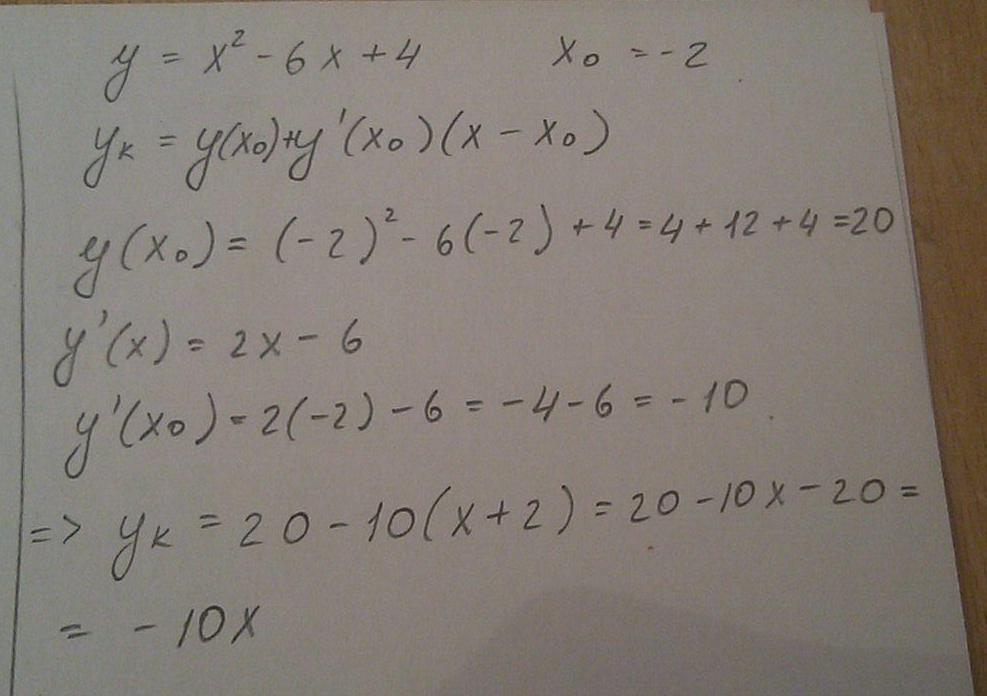 y = x² - 6x + 4 x₀ = -2
yₖ = y(x₀)+y'(x₀)(x - x₀)
y(x₀) = (-2)² - 6(-2) + 4 = 4 + 12 + 4 = 20
y'(x) = 2x - 6
y'(x₀) = 2(-2) - 6 = -4 - 6 = -10
=> yₖ = 20 - 10(x+2) = 20 - 10x - 20 =
= -10x